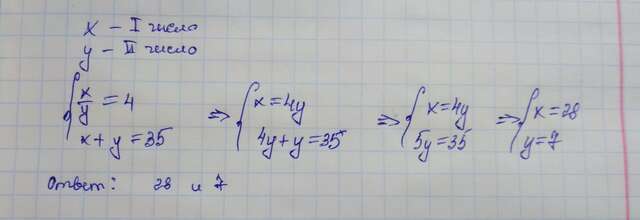 x – I число
y – II число
{ x/y = 4 ; x + y = 35 => { x = 4y ; 4y + y = 35 => { x = 4y ; 5y = 35 => { x = 28 ; y = 7
Ответ: 28 и 7